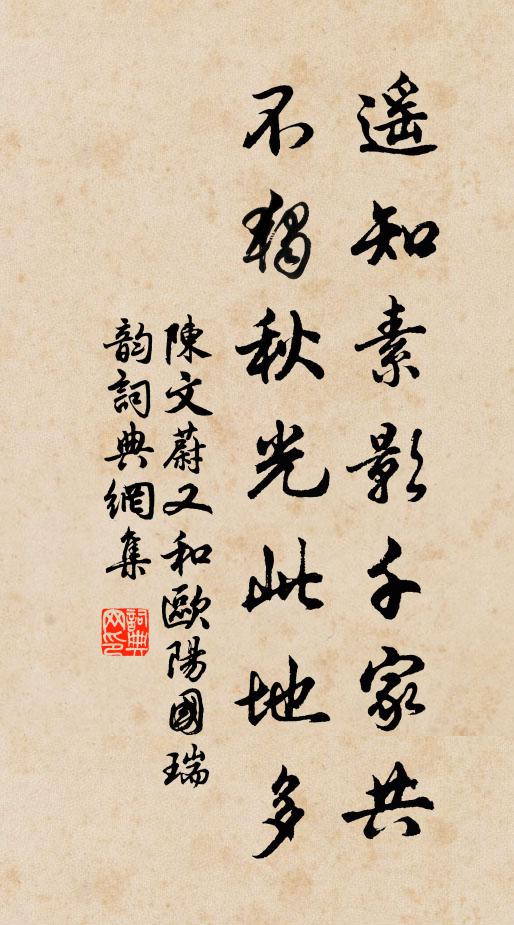 遥知素影千家共
不獨秋光此地多
陳文蔚又和歐陽國瑞
韵詞典網集
詞典
网印